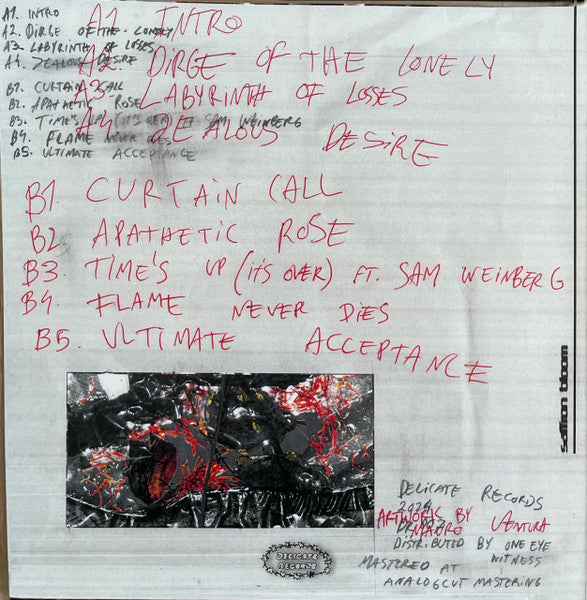 A1. INTRO
A2. DIRGE OF THE LONELY
A3. LABYRINTH OF LOSES
A4. ZEALOUS DESIRE
B1. CURTAIN CALL
B2. APATHETIC ROSE
B3. TIME'S UP (IT'S OVER) FT SAM WEINBERG
B4. FLAME NEVER DIES
B5. ULTIMATE ACCEPTANCE
A1 INTRO
A2. DIRGE OF THE LONELY
A3. LABYRINTH OF LOSSES
A4. ZEALOUS DESIRE
B1 CURTAIN CALL
B2 APATHETIC ROSE
B3 TIME'S UP (IT'S OVER) FT. SAM WEINBERG
B4. FLAME NEVER DIES
B5. ULTIMATE ACCEPTANCE
saffron bloom
DELICATE RECORDS
2024
ARTWORK BY MAURO VENTURA
DISTRIBUTED BY ONE EYE WITNESS
MASTERED AT
ANALOGCUT MASTERING
DELICATE
RECORDS